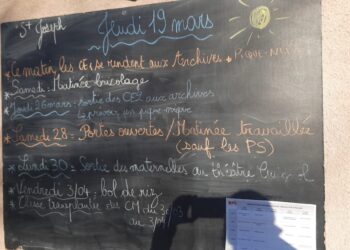 St Joseph
Jeudi 19 mars
* Ce matin les CE1 se rendent aux Archives + PIQUE-NIQUE
* Samedi : Matinée bricolage
* Jeudi 26 mars : sortie des CE2 aux archives
prévoir un pique-nique
* Samedi 28 : Portes ouvertes / Matinée travaillée
(sauf les PS)
* Lundi 30 : Sortie des maternelles au théâtre
* Vendredi 3/04 : bol de riz
* Classe transplantée des CM du 30/3
au 3/04